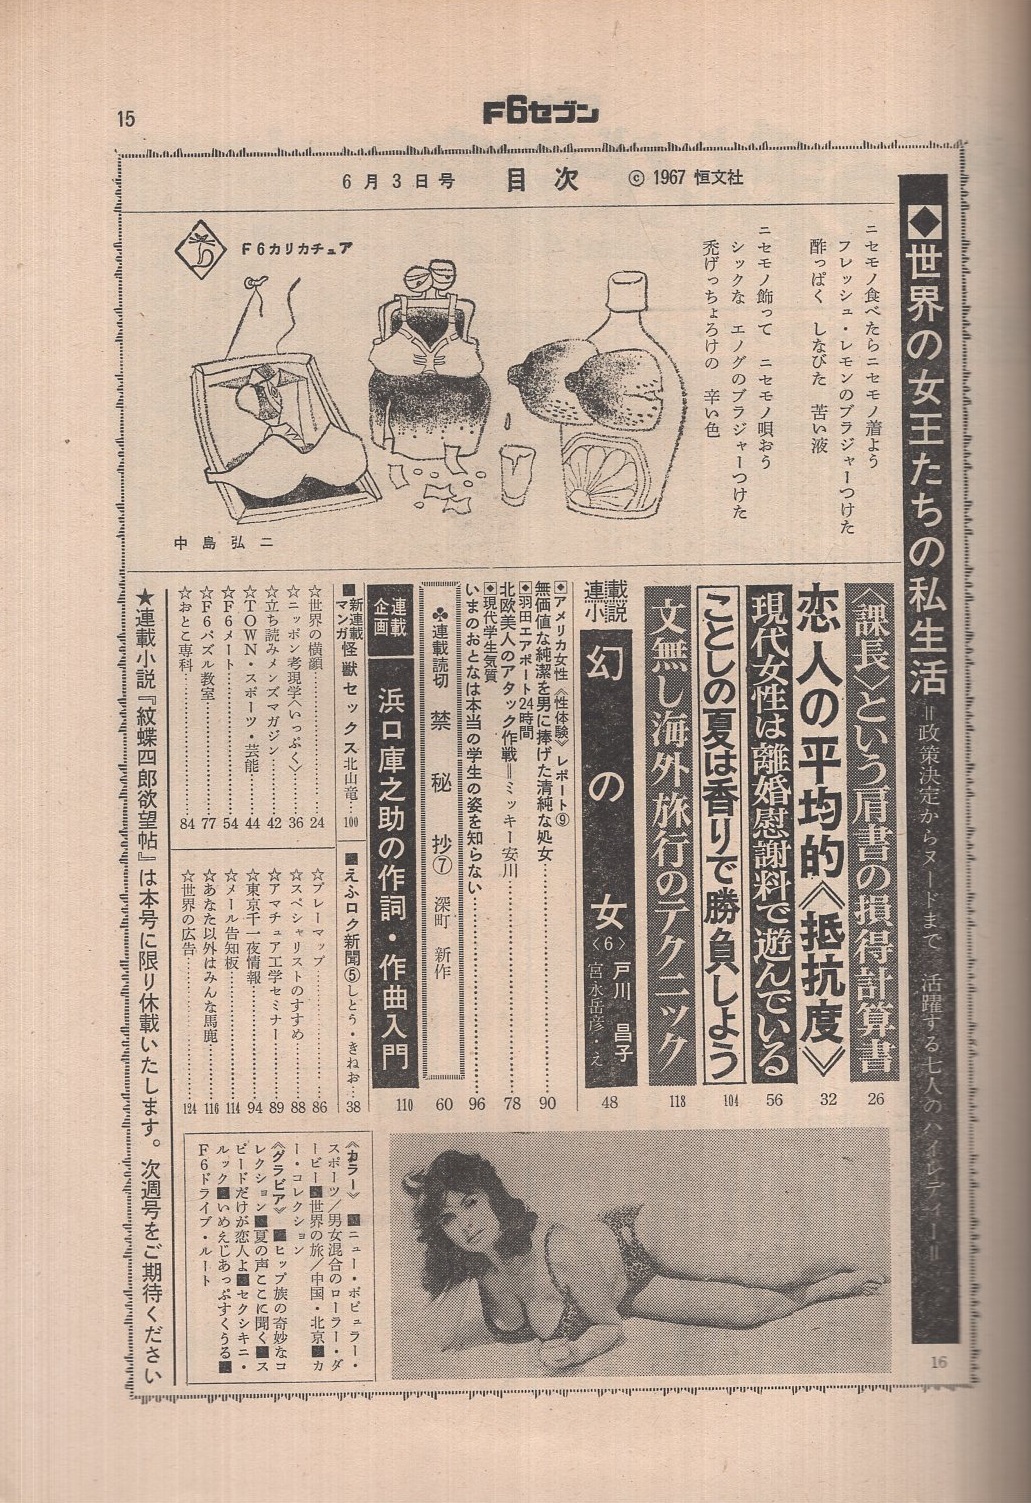 15
F6セブン
6月3日号
目次
© 1967 恒文社
◆世界の女王たちの私生活
=政策決定からヌードまで 活躍する七人のハイレディー=
16
ニセモノ食べたらニセモノ着よう
フレッシュ・レモンのブラジャーつけた
酢っぱく しなびた 苦い液
ニセモノ飾って ニセモノ唄おう
シックな エノグのブラジャーつけた
禿げっちょろけの 辛い色
F6カリカチュア
中島弘二
〈課長〉という肩書の損得計算書
26
恋人の平均的《抵抗度》
32
現代女性は離婚慰謝料で遊んでいる
56
ことしの夏は香りで勝負しよう
104
文無し海外旅行のテクニック
118
連載小説
幻の女〈6〉
戸川 昌子
宮永岳彦・え
48
◆アメリカ女性《性体験》レポート⑨
無価値な純潔を男に捧げた清純な処女…………90
◆羽田エアポート24時間
北欧美人のアタック作戦=ミッキー安川…………78
◆現代学生気質
いまのおとなは本当の学生の姿を知らない…………96
♣連載読切 禁秘抄⑦ 深町 新作
60
連載企画
浜口庫之助の作詞・作曲入門
110
■新連載マンガ 怪獣セックス 北山竜…100
■えふロク新聞⑤しとう・きねお…38
☆世界の横顔…………24
☆ニッポン考現学〈いっぷく〉…………36
☆立ち読みメンズマガジン…………42
☆TOWN・スポーツ・芸能…………44
☆F6メート…………54
☆F6パズル教室…………77
☆おとこ専科…………84
☆プレーマップ…………86
☆スペシャリストのすすめ…………88
☆アマチュア工学セミナー…………89
☆東京千一夜情報…………94
☆メール告知板…………114
☆あなた以外はみんな馬鹿…………116
☆世界の広告…………124
《カラー》■ニュー・ポピュラー・
スポーツ/男女混合のローラー・ダ
ービー■世界の旅/中国・北京■カ
ー・コレクション
《グラビア》■ヒップ族の奇妙なコ
レクション■夏の声ここに聞く■ス
ピードだけが恋人よ■セクシキニ・
ルック■いめえじあっぷすくうる■
F6ドライブ・ルート
★連載小説『紋蝶四郎欲望帖』は本号に限り休載いたします。次週号をご期待ください